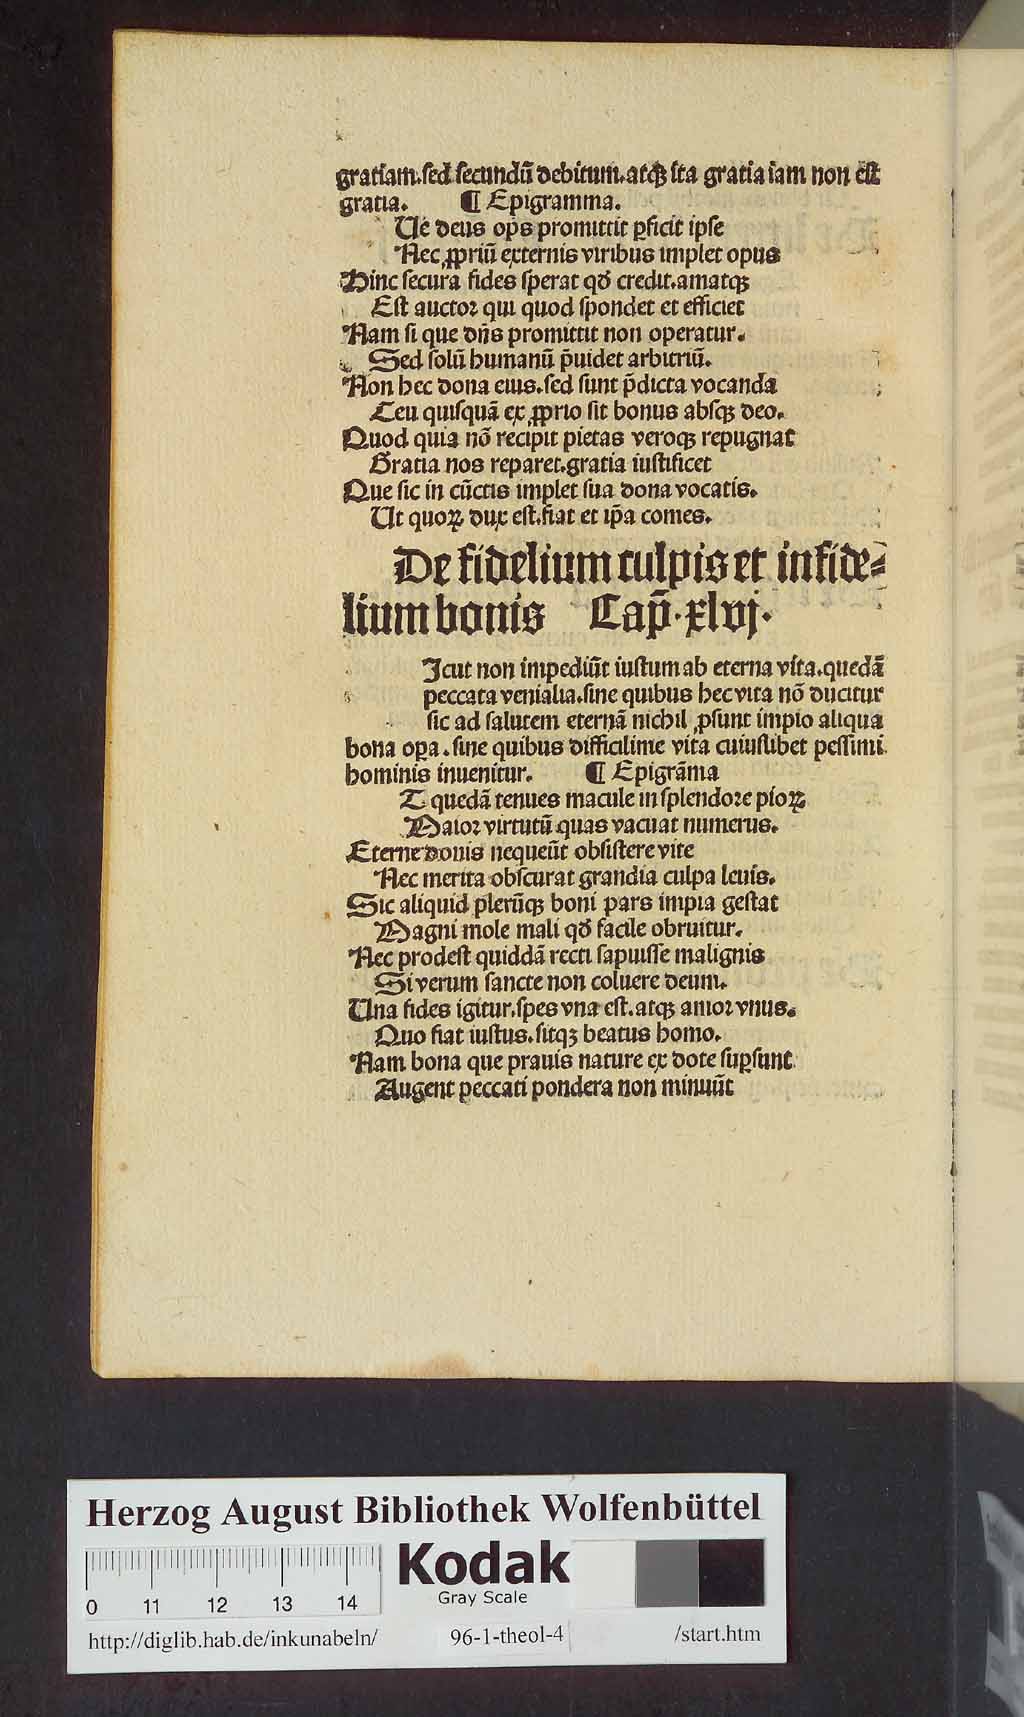 gratiam.sed secundū debitum.atqꝫ ita gratia iam non est
gratia. ¶ Epigramma.
Ue deus ops promittit ꝑficit ipse
Nec ꝓpriū externis viribus implet opus
Hinc secura fides sperat qď credit.amatqꝫ
Est auctor qui quod spondet et efficiet
Nam si que dn̄s promittit non operatur.
Sed solū humanū p̄uidet arbitriū.
Non hec dona eius.sed sunt p̄dicta vocanda
Ceu quisquā ex ꝓprio sit bonus absqꝫ deo.
Quod quia nō recipit pietas veroqꝫ repugnat
Gratia nos reparet.gratia iustificet
Que sic in cūctis implet sua dona vocatis.
Ut quoꝝ dux est.fiat et ip̄a comes.
De fidelium culpis et infide⸗
lium bonis Cap̄.xlvj.
Icut non impediūt iustum ab eterna vita.quedā
peccata venialia.sine quibus hec vita nō ducitur
sic ad salutem eternā nichil ꝓsunt impio aliqua
bona oꝑa.sine quibus difficilime vita cuiuslibet pessimi
hominis inuenitur. ¶ Epigrāma
T quedā tenues macule in splendore pioꝝ
Maior virtutū quas vacuat numerus.
Eterne donis nequeūt obsistere vite
Nec merita obscurat grandia culpa leuis.
Sic aliquid plerūqꝫ boni pars impia gestat
Magni mole mali qď facile obruitur.
Nec prodest quiddā recti sapuisse malignis
Si verum sancte non coluere deum.
Una fides igitur.spes vna est.atqꝫ amor vnus.
Quo fiat iustus.sitqꝫ beatus homo.
Nam bona que prauis nature ex dote suꝑsunt
Augent peccati pondera non minuūt
Herzog August Bibliothek Wolfenbüttel
Kodak
Gray Scale
0 11 12 13 14
http://diglib.hab.de/inkunabeln/ 96-1-theol-4 /start.htm